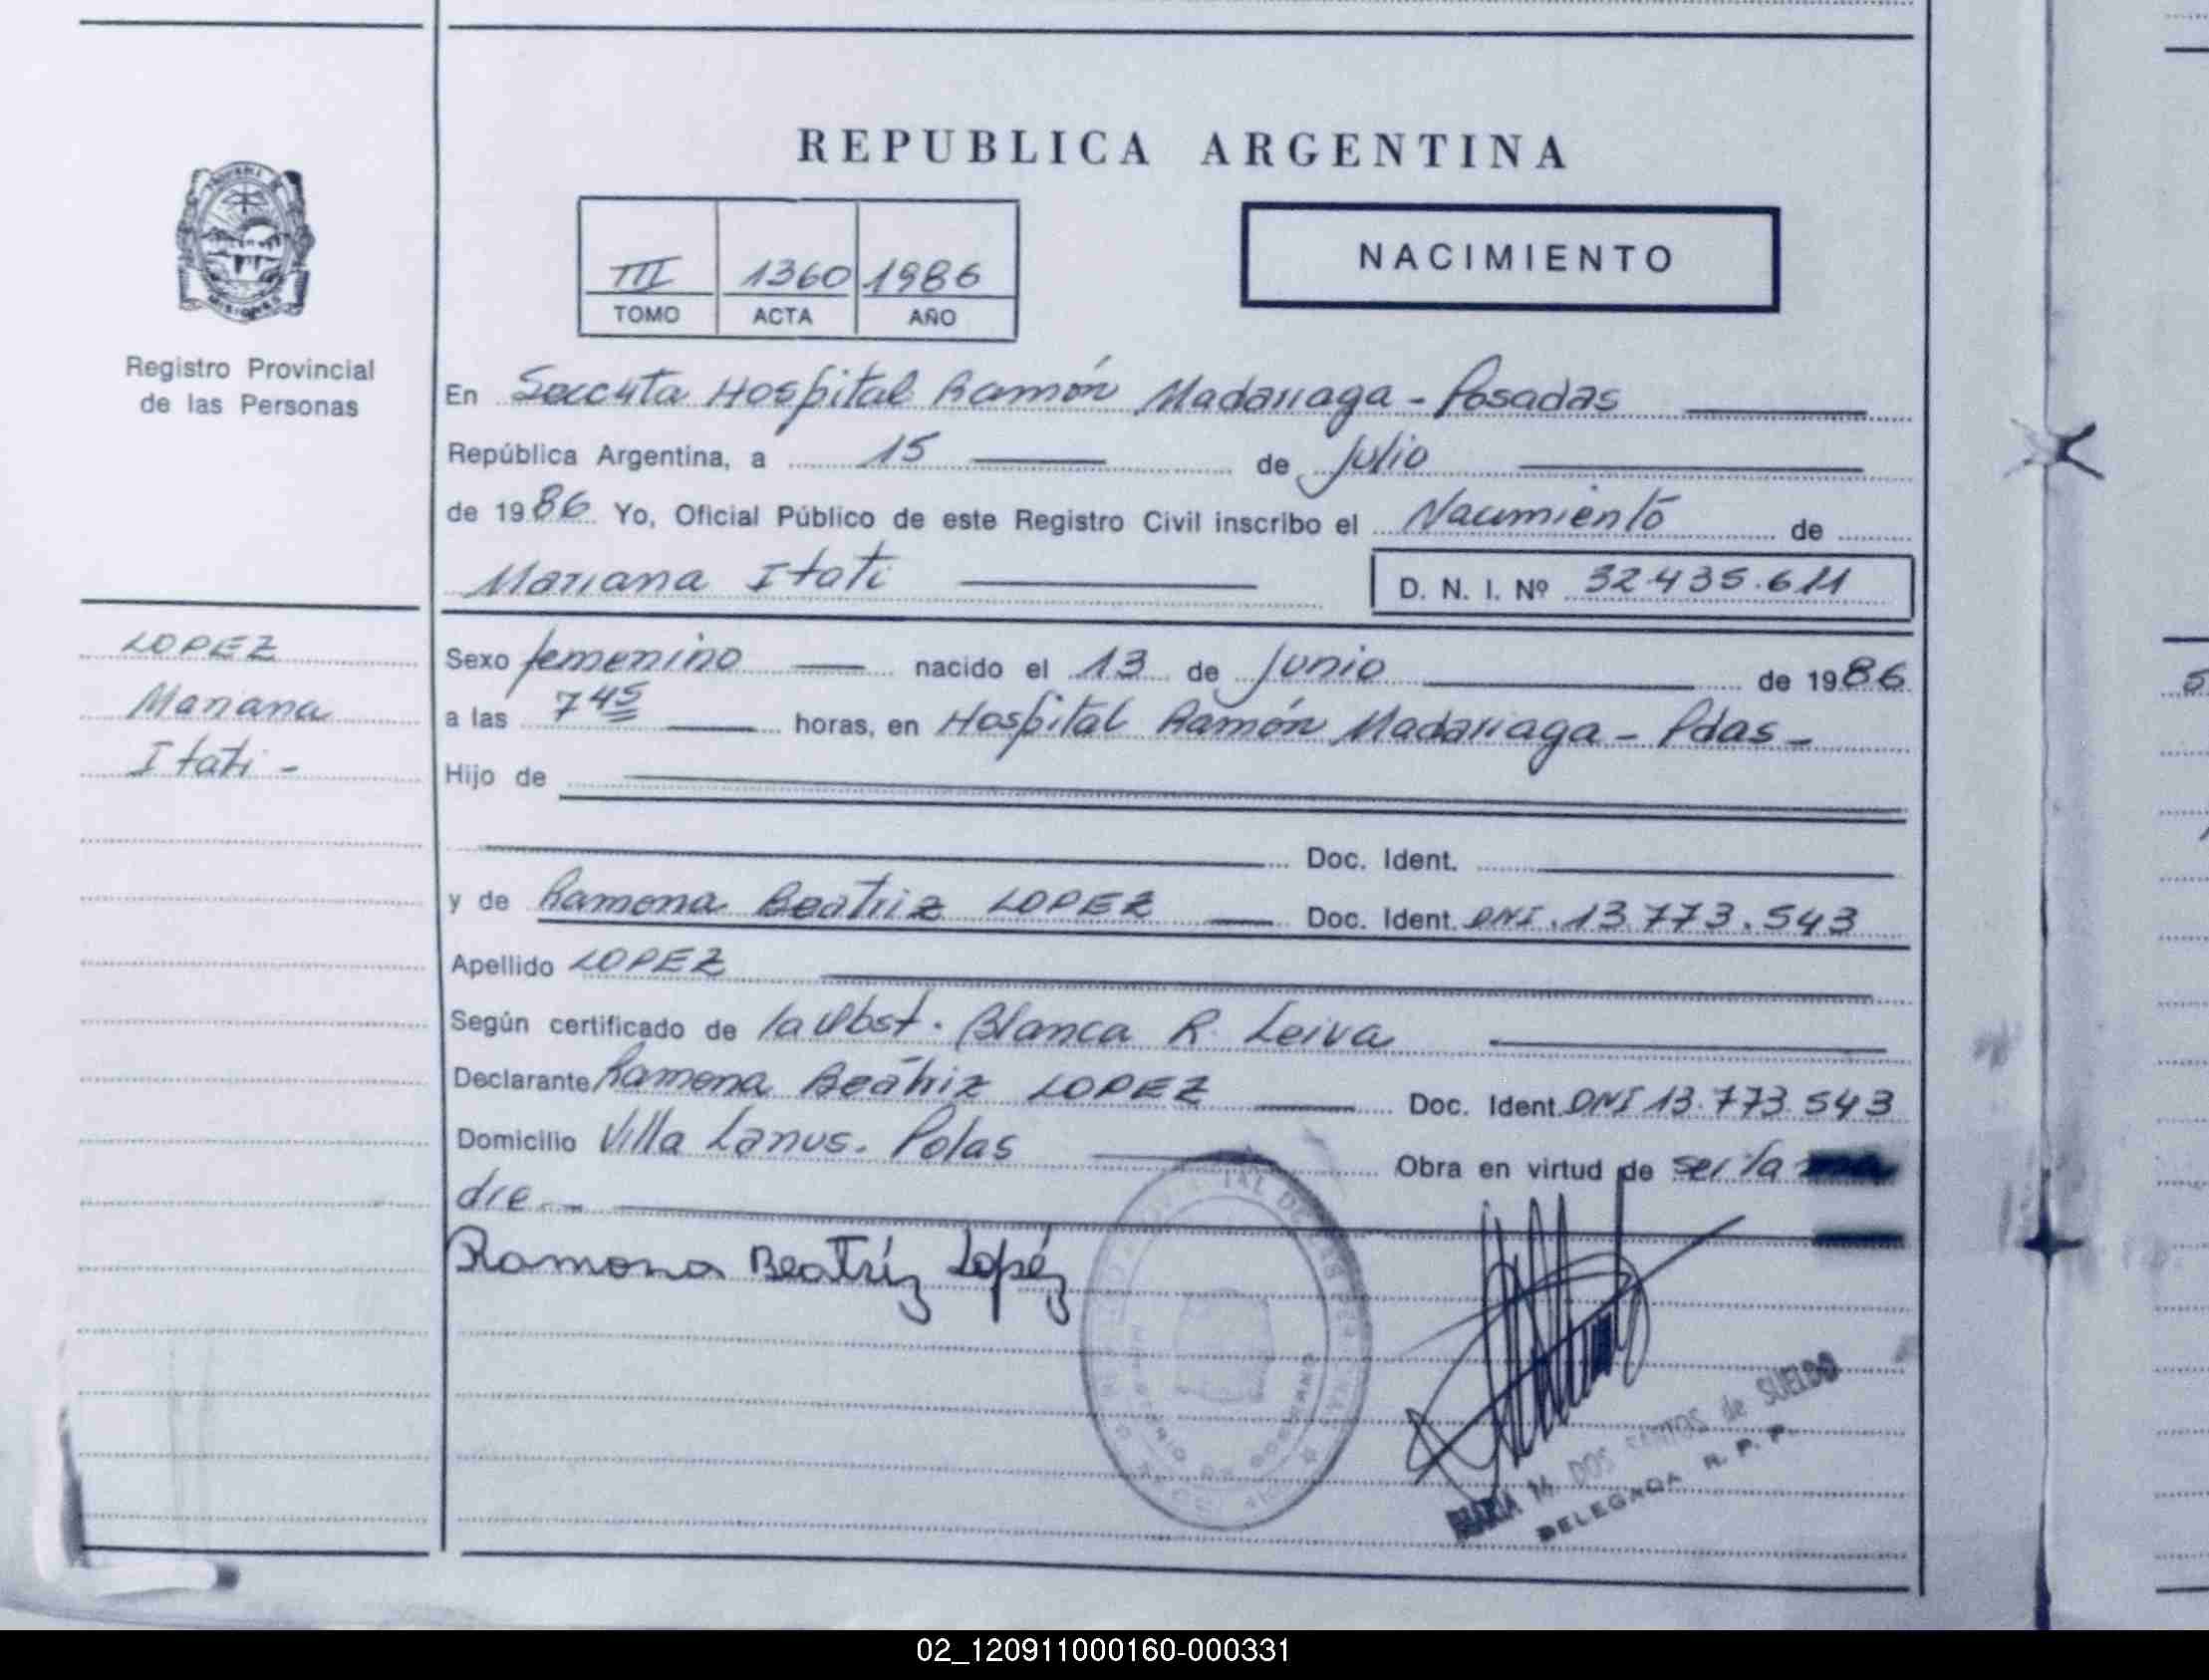 REPUBLICA ARGENTINA
NACIMIENTO
III 1360 1986
TOMO ACTA AÑO
Registro Provincial
de las Personas
En Seccita Hospital Ramón Madariaga - Posadas
República Argentina, a 15 de Julio
de 1986 Yo, Oficial Público de este Registro Civil inscribo el Nacimiento de
Mariana Itati D. N. I. Nº 32.435.611
LOPEZ
Mariana
Itati -
Sexo femenino nacido el 13 de Junio de 1986
a las 7 45 horas, en Hospital Ramón Madariaga - Pdas -
Hijo de
Doc. Ident.
y de Ramona Beatriz LOPEZ Doc. Ident. DNI. 13.773.543
Apellido LOPEZ
Según certificado de la Obst. Blanca R. Leiva
Declarante Ramona Beatriz LOPEZ Doc. Ident. DNI 13.773.543
Domicilio Villa Lanus. Pdas Obra en virtud de ser la ma
dre. -
Ramona Beatríz Lopéz
MARIA M. DOS SANTOS de SUELDO
DELEGADA R. P. P.
02_120911000160-000331